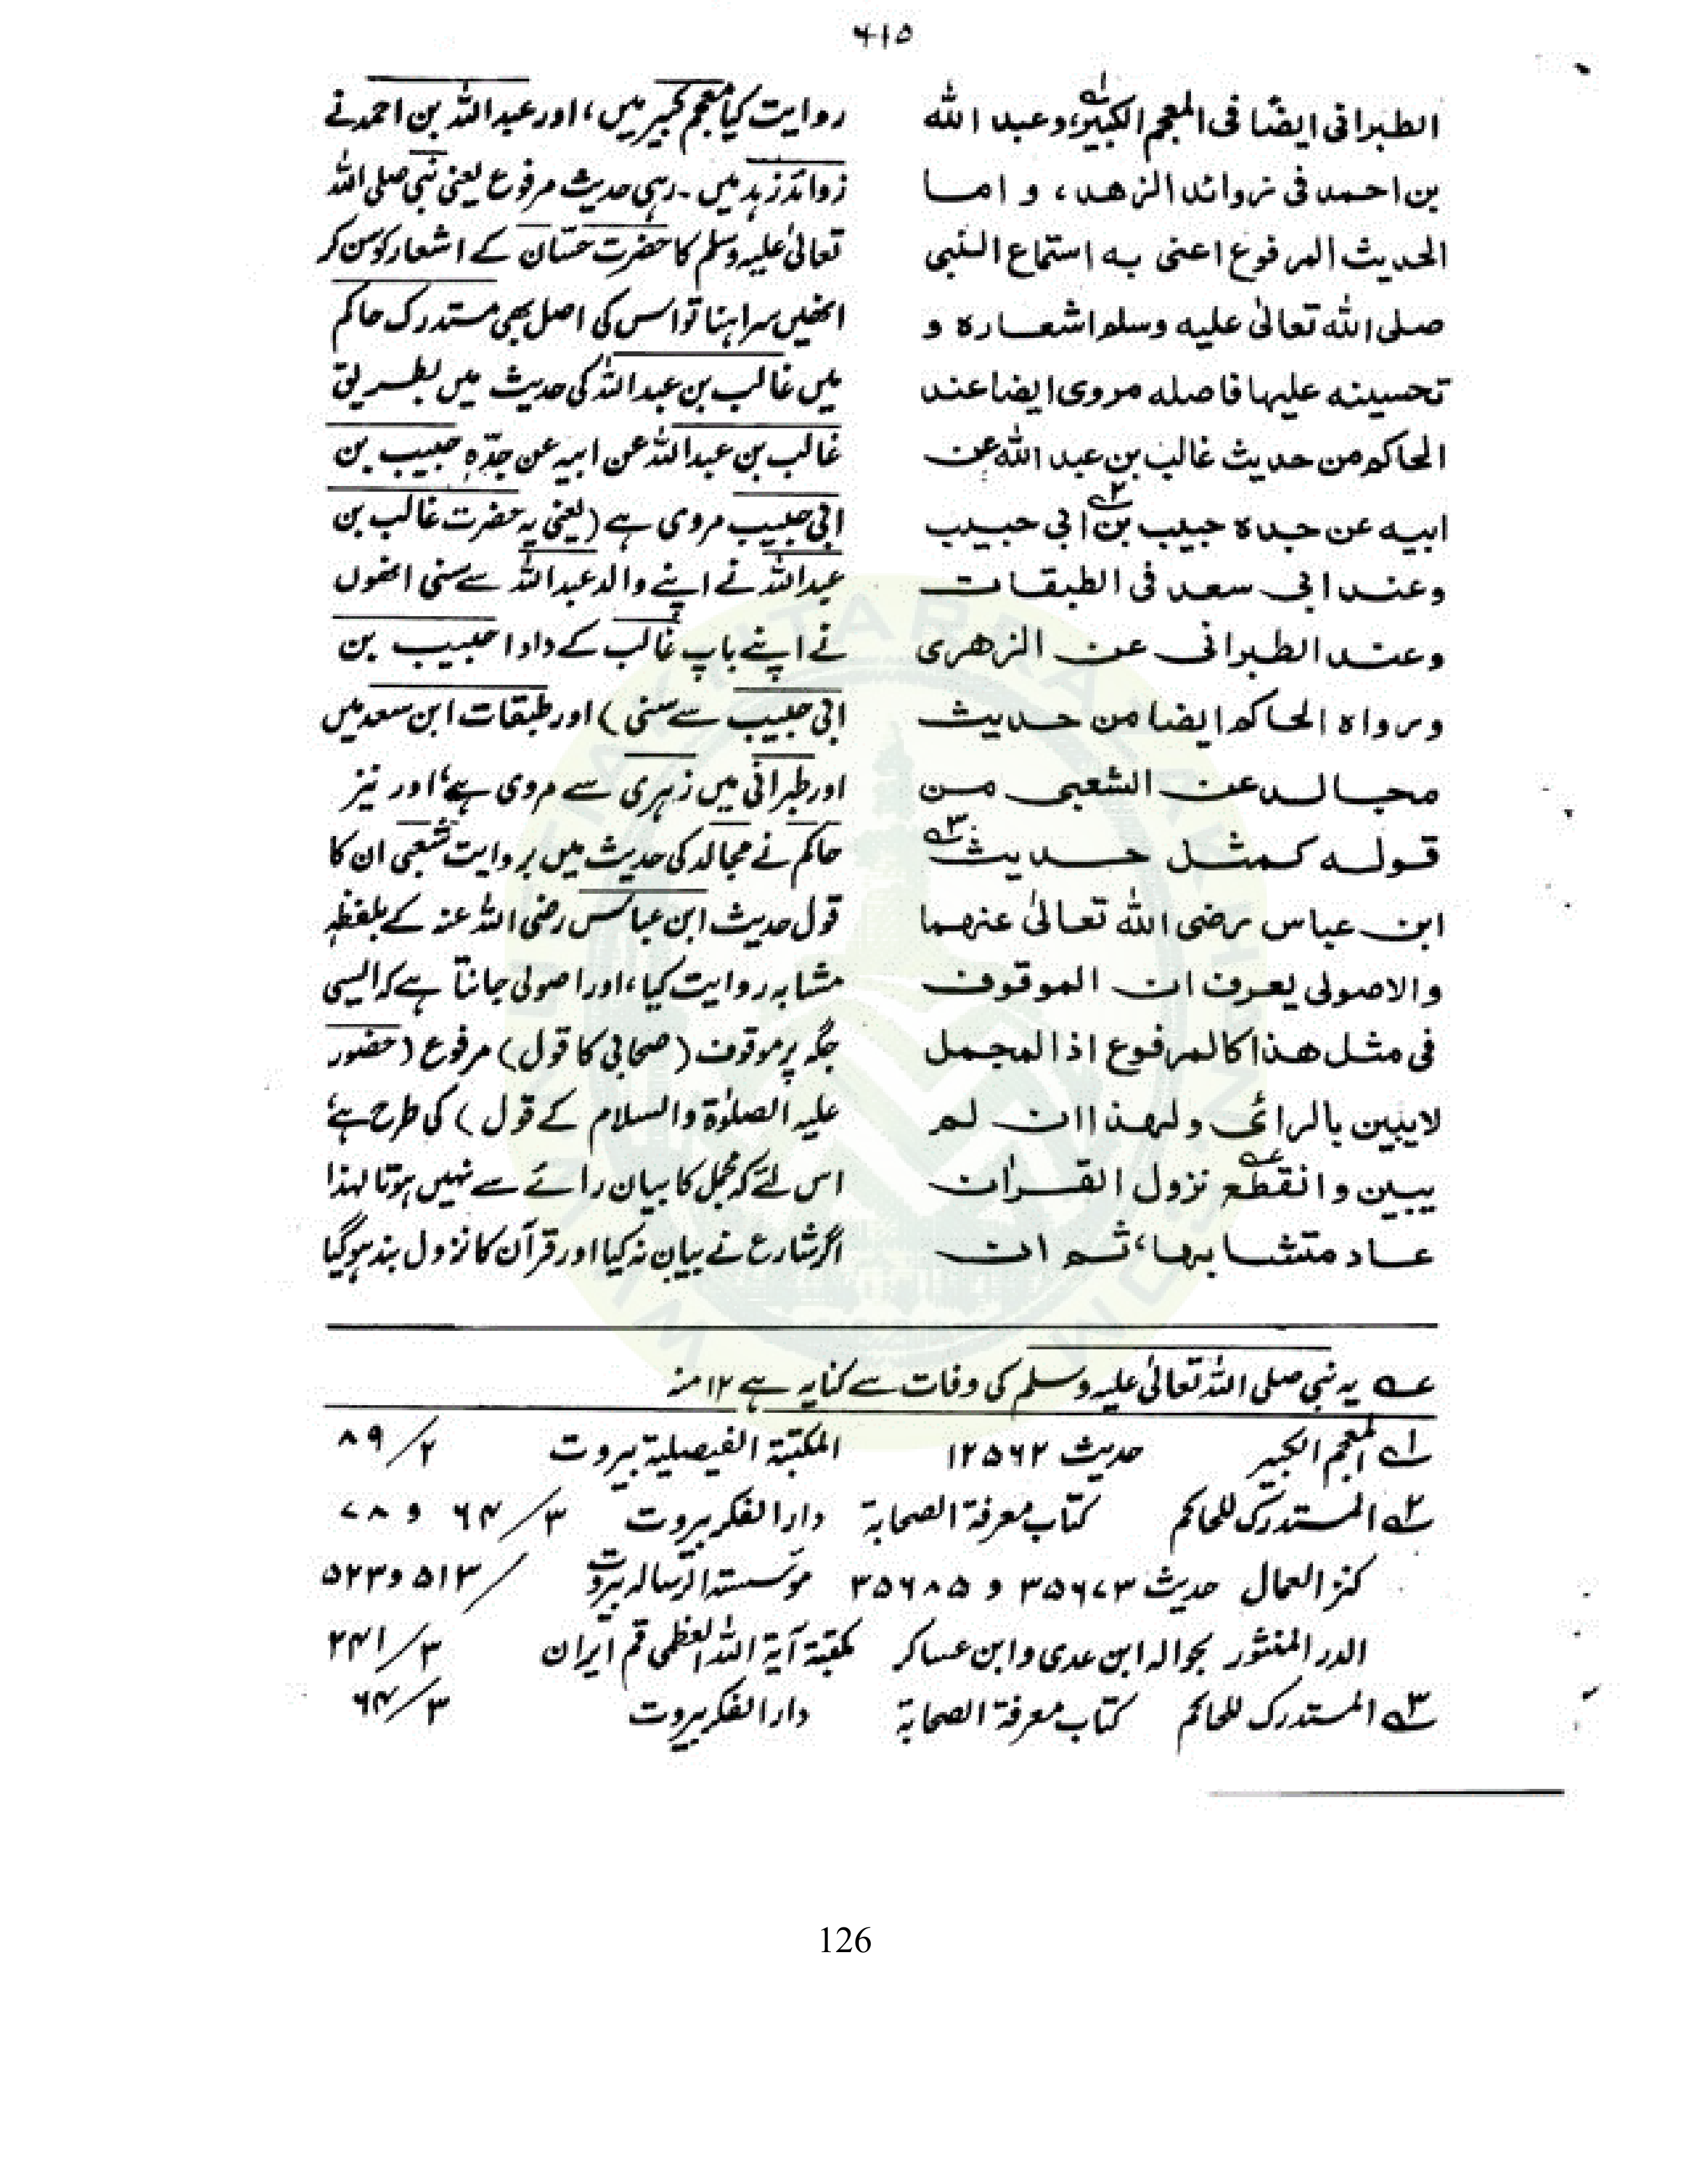 ۶۱۵
الطبرانی ایضًا فی المعجم الکبیر۱ـہ، وعبد اللہ
بن احمد فی زوائد الزھد، و اما
الحدیث المرفوع اعنی بہ استماع النبی
صلی اللہ تعالیٰ علیہ وسلم اشعارہ و
تحسینہ علیہا فاصلہ مروی ایضا عند
الحاکم من حدیث غالب بن عبد اللہ عن
ابیہ عن جدہ حبیب بن۲ـہ ابی حبیب
وعند ابی سعد فی الطبقات
وعند الطبرانی عن الزھری
ورواہ الحاکم ایضا من حدیث
مجالد عن الشعبی من
قولہ کمثل حدیث۳ـہ
ابن عباس رضی اللہ تعالیٰ عنہما
والاصولی یعرف ان الموقوف
فی مثل ھذا کالمرفوع اذ المجمل
لایبین بالرائ ولہذا ان لم
یبین و انقطع عـہ نزول القراٰن
عاد متشابہا، ثم ان
روایت کیا معجم کبیر میں، اور عبداللہ بن احمد نے
زوائد زہد میں ۔ رہی حدیث مرفوع یعنی نبی صلی اللہ
تعالیٰ علیہ وسلم کا حضرت حسّان کے اشعار کو سن کر
انھیں سراہنا تو اس کی اصل بھی مستدرک حاکم
میں غالب بن عبداللہ کی حدیث میں بطریق
غالب بن عبداللہ عن ابیہ عن جدّہٖ حبیب بن
ابی حبیب مروی ہے (یعنی یہ حضرت غالب بن
عبداللہ نے اپنے والد عبداللہ سے سنی انھوں
نے اپنے باپ غالب کے دادا حبیب بن
ابی حبیب سے سنی) اور طبقات ابن سعد میں
اور طبرانی میں زہری سے مروی ہے، اور نیز
حاکم نے مجالد کی حدیث میں بروایت شعبی ان کا
قول حدیث ابن عباس رضی اللہ عنہ کے بلفظہٖ
مشابہ روایت کیا، اور اصولی جانتا ہے کہ ایسی
جگہ پر موقوف (صحابی کا قول) مرفوع (حضور
علیہ الصلوٰۃ والسلام کے قول) کی طرح ہے،
اس لئے کہ مجمل کا بیان رائے سے نہیں ہوتا لہذا
اگر شارع نے بیان نہ کیا اور قرآن کا نزول بند ہوگیا
عـہ یہ نبی صلی اللہ تعالیٰ علیہ وسلم کی وفات سے کنایہ ہے ۱۲ منہ
۱ـہ المعجم الکبیر حدیث ۱۲۵۶۲ المکتبۃ الفیصلیۃ بیروت ۲/ ۸۹
۲ـہ المستدرک للحاکم کتاب معرفۃ الصحابۃ دارالفکر بیروت ۳/ ۶۴ و ۷۸
کنز العمال حدیث ۳۵۶۷۳ و ۳۵۶۸۵ موسسۃ الرسالہ بیروت / ۵۱۳ و ۵۲۳
الدر المنثور بحوالہ ابن عدی و ابن عساکر مکتبۃ آیۃ اللہ العظمی قم ایران ۳/ ۲۴۱
۳ـہ المستدرک للحاکم کتاب معرفۃ الصحابۃ دارالفکر بیروت ۳/ ۶۴
126